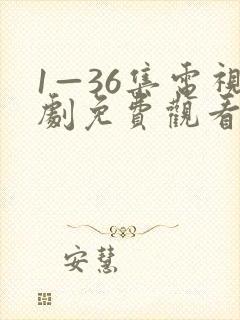 1—36集電視
劇免費觀看
安慧